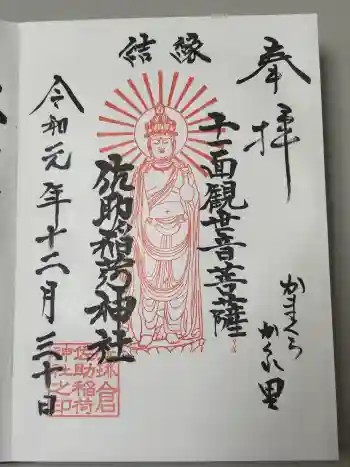 奉拝
かまくら
かくれ里
縁結
十一面観世音菩薩
佐助稲荷神社
令和元年十二月三十日
鎌倉
佐助稲荷
神社之印